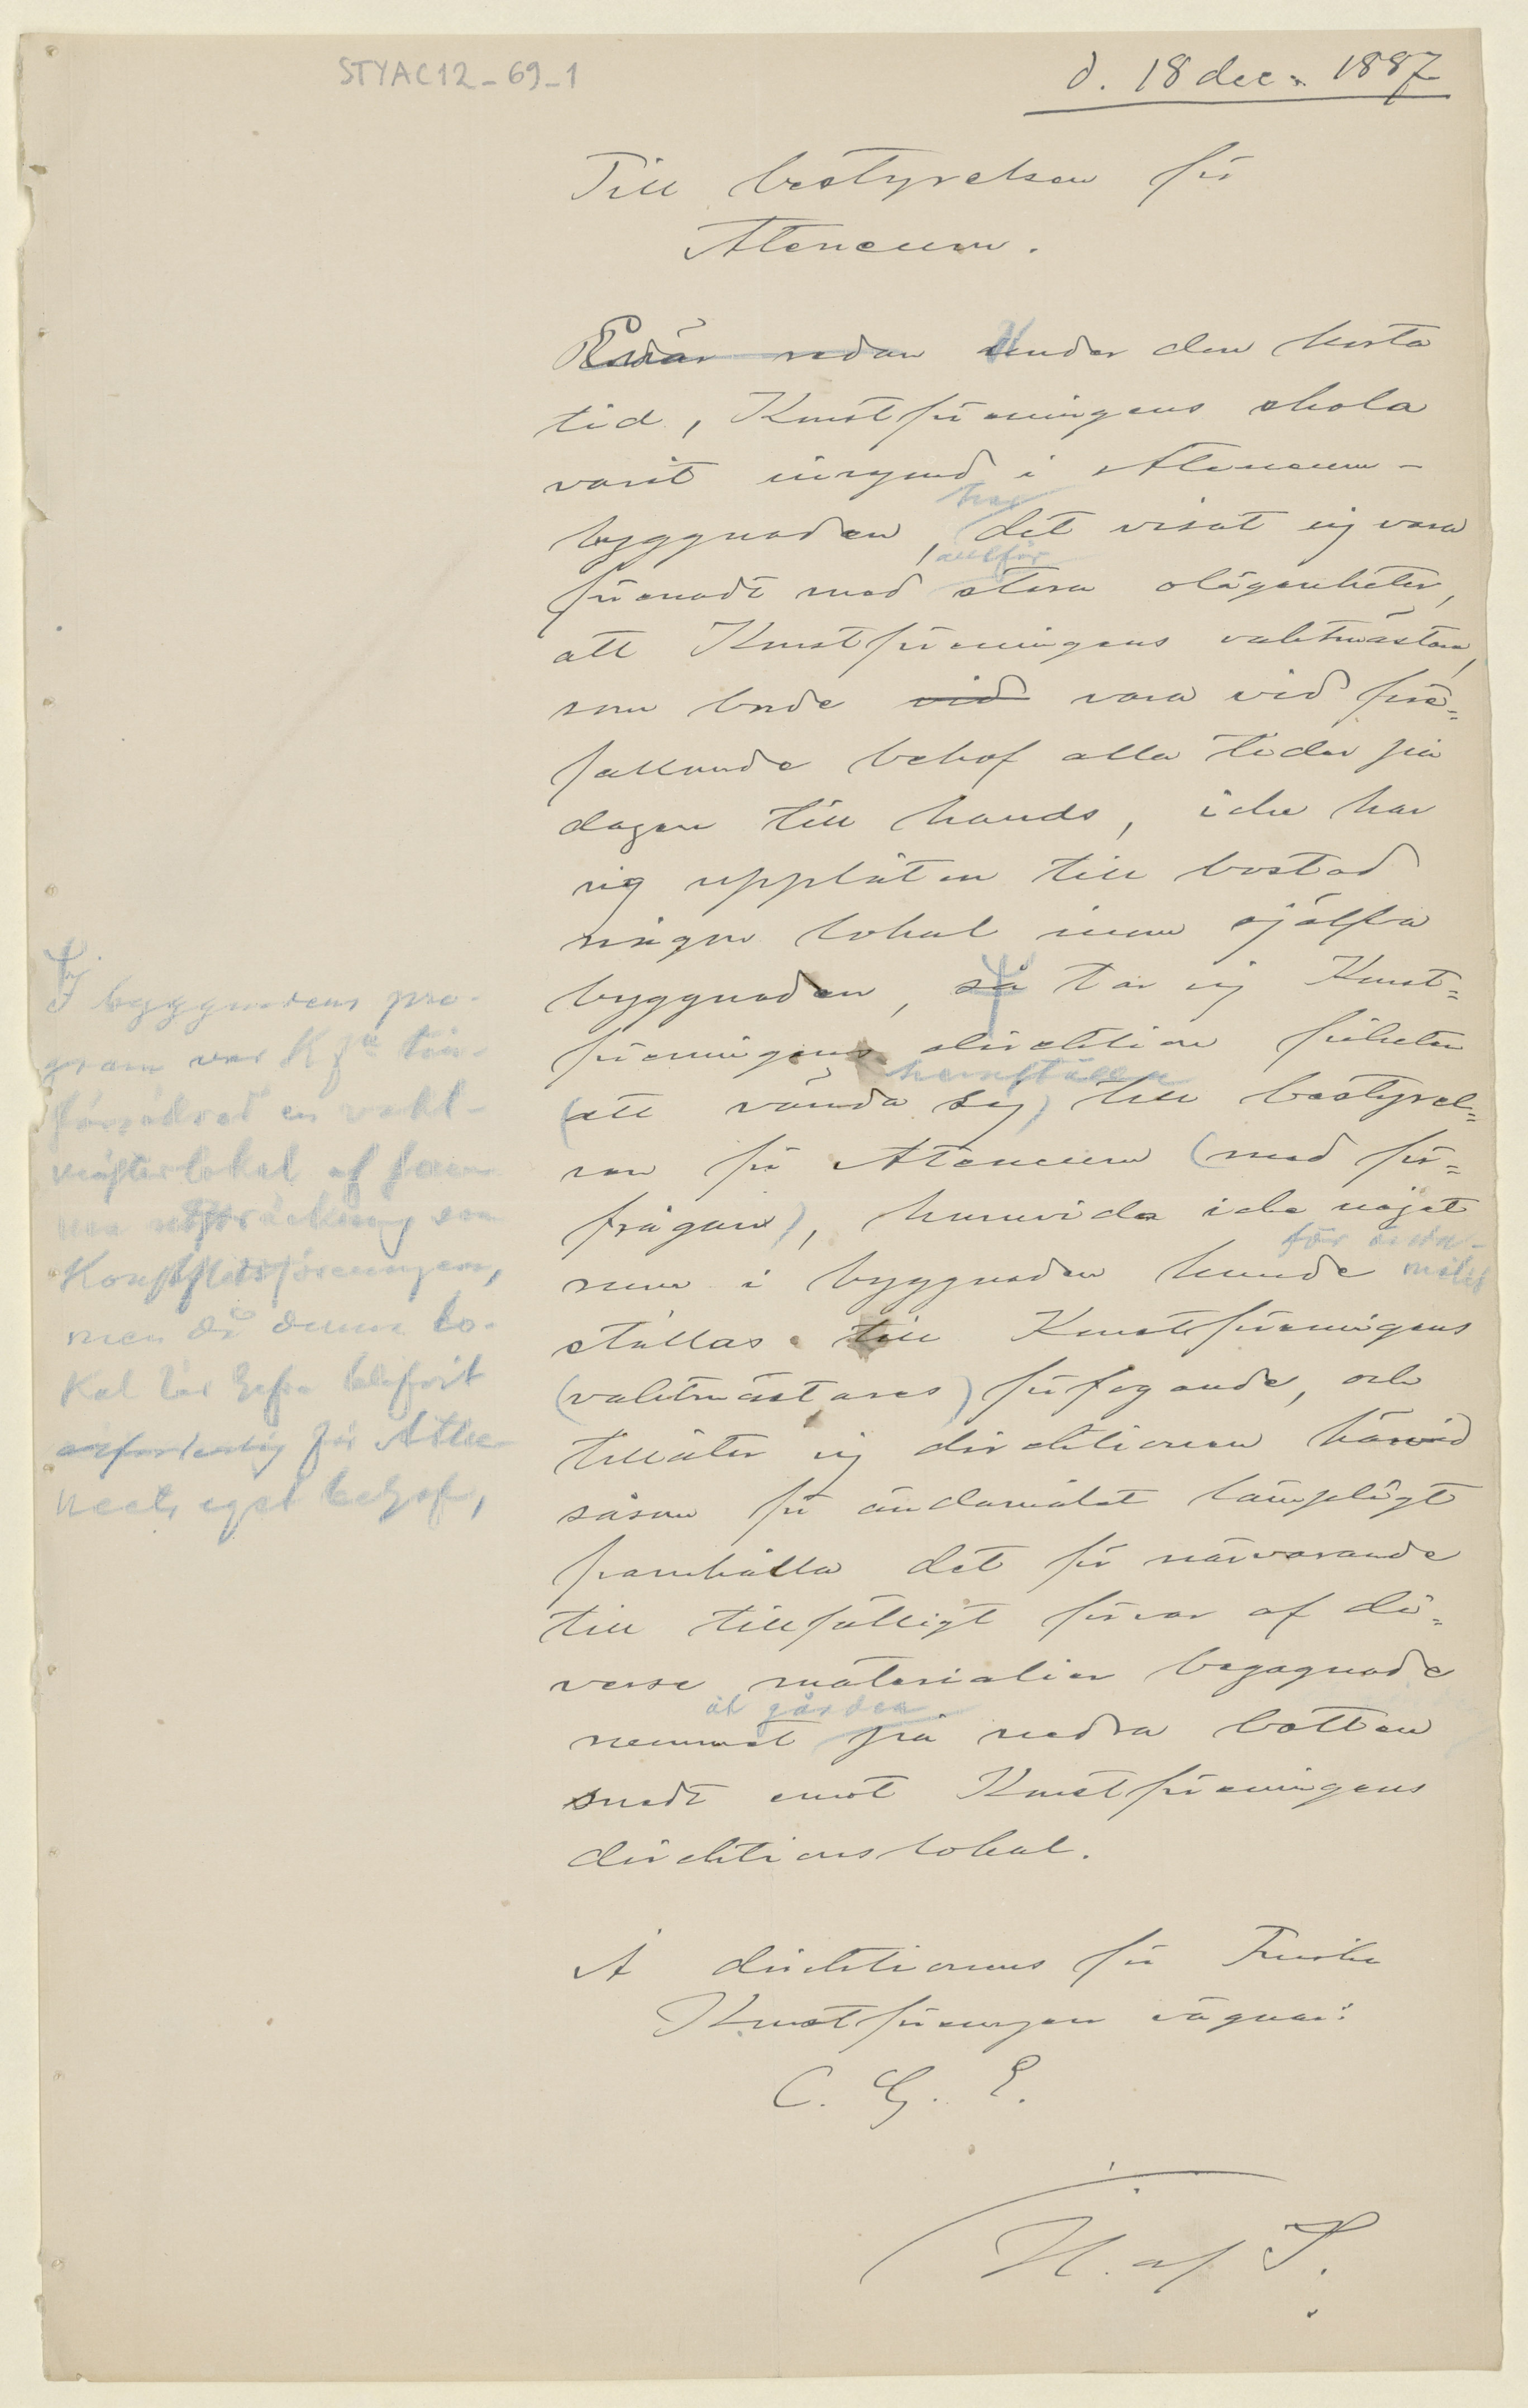 STYAC12-69-1
d. 18 dec. 1887
Till bestyrelsen för
Ateneum.
Enär redan Under den korta
tid, Konstföreningens skola
varit inrymd i Ateneum-
har
byggnaden, det visat sig vara
allför
förenadt med stora olägenheter,
att Konstföreningens vaktmästare,
som borde vid vara vid före=
fallande behof alla tider på
dagen till hands, icke har
sig upplåten till bostad
någon lokal inom sjelfva
byggnaden, så tar sig Konst=
föreningens direktion friheten
hemställa
(att vända sig) till bestyrel=
sen för Ateneum (med för=
frågan), huruvida icke något
för ända-
rum i byggnaden kunde målet
ställas till Konstföreningens
(vaktmästares) förfogande, och
tillåter sig direktionen härvid
såsom för ändamålet lämpligt
framhålla det för närvarande
till tillfälligt förvar af di=
verse materialier begagnade
åt gården
rummet på nedra botten
snedt emot Konstföreningens
direktionslokal.
Å direktionens för Finska
Konstföreningen vägnar:
C. G. E.
H. af S.
I byggnadens pro-
gram var Kfn till-
en vakt-
mästerlokal af
som
Konstflitsföreningen,
men då denna lo-
kal lär hafva blifvit
för Athe-
neets eget behof,